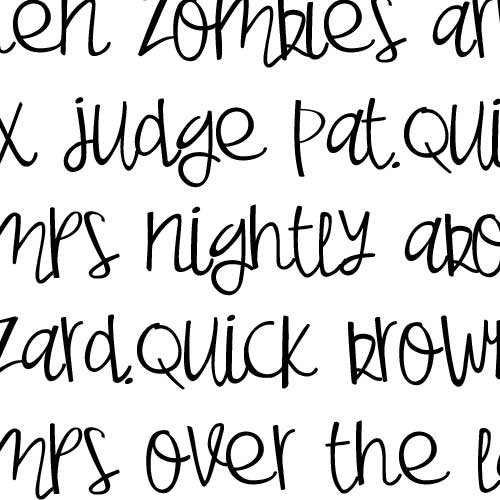 en zombies ar
x judge pat.Qui
mps nightly abo
zard.Quick brow
mps over the la